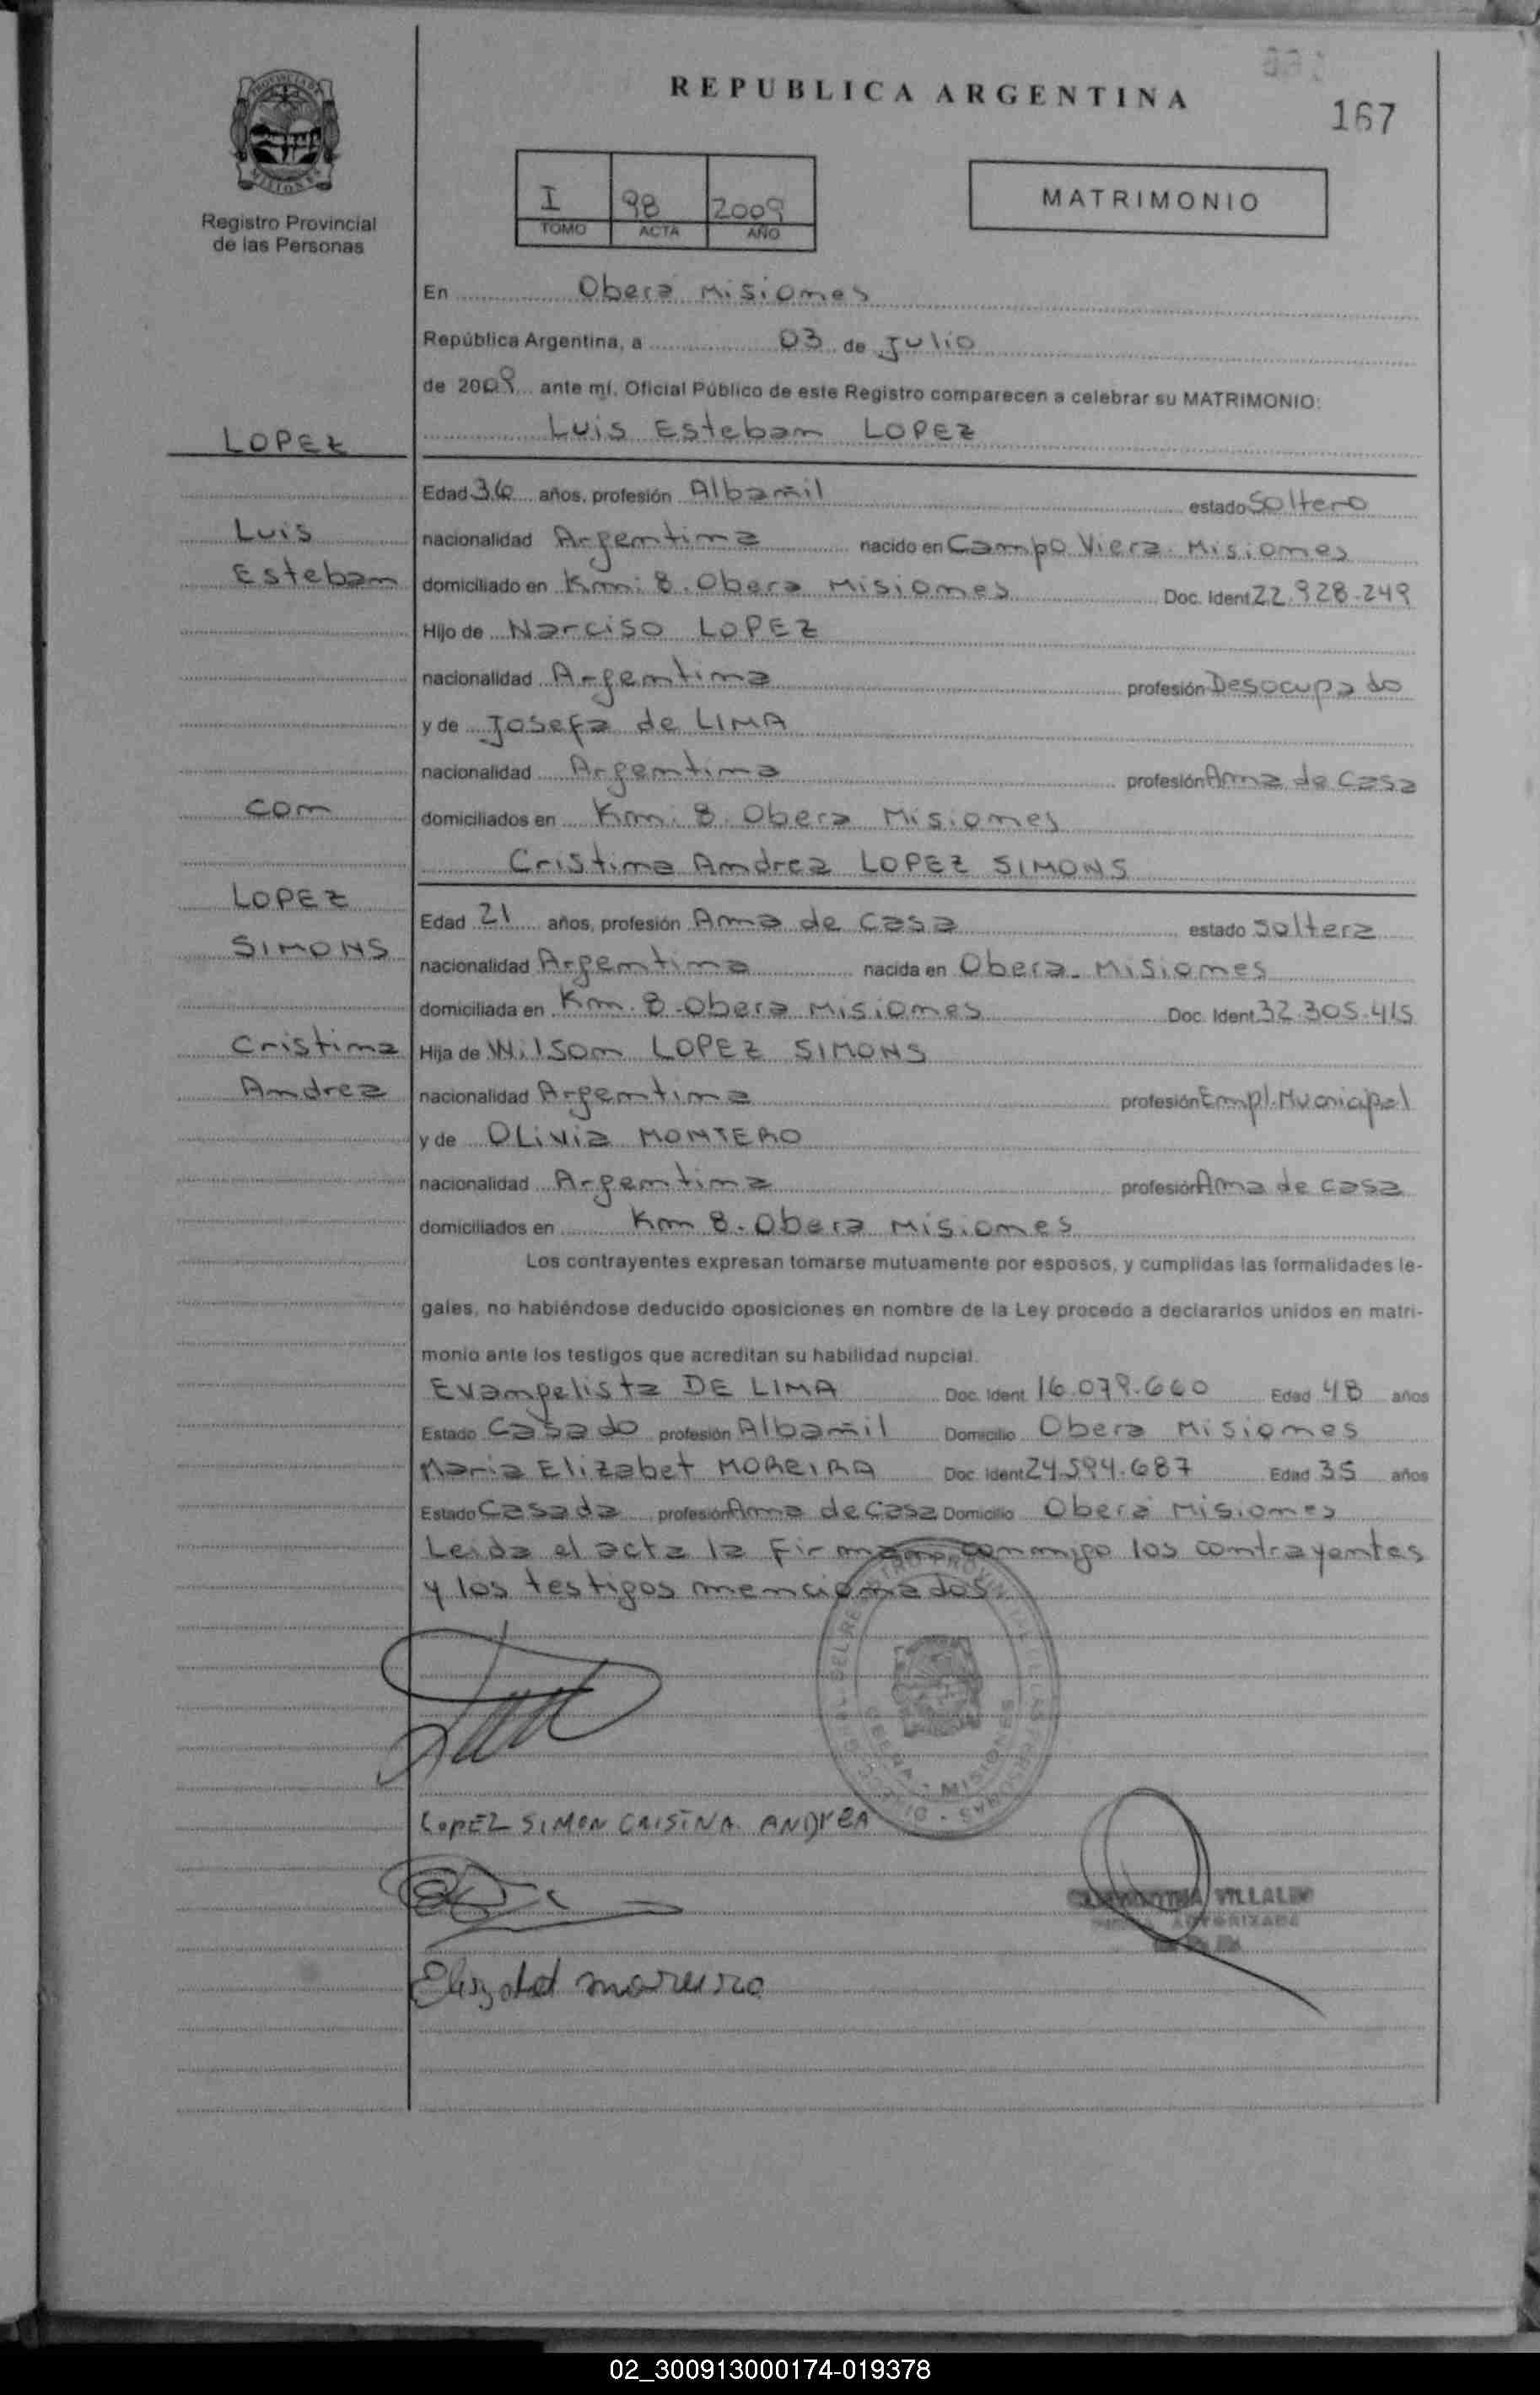 REPUBLICA ARGENTINA
167
PROVINCIA DE
MISIONES
Registro Provincial
de las Personas
I 98 2009
TOMO ACTA AÑO
MATRIMONIO
En Oberá Misiones
República Argentina, a 03 de Julio
de 2009 ante mí, Oficial Público de este Registro comparecen a celebrar su MATRIMONIO:
Luis Esteban LOPEZ
LOPEZ
Edad 36 años, profesión Albañil estado Soltero
Luis
nacionalidad Argentina nacido en Campo Viera. Misiones
Esteban
domiciliado en Km. 8. Obera Misiones Doc. Ident. 22.928.249
Hijo de Narciso LOPEZ
nacionalidad Argentina profesión Desocupado
y de Josefa de LIMA
nacionalidad Argentina profesión Ama de casa
con
domiciliados en Km. 8. Obera Misiones
Cristina Andrea LOPEZ SIMONS
LOPEZ
Edad 21 años, profesión Ama de casa estado soltera
SIMONS
nacionalidad Argentina nacida en Obera. Misiones
domiciliada en Km. 8. Obera Misiones Doc. Ident. 32.305.415
Cristina
Hija de Wilson LOPEZ SIMONS
Andrea
nacionalidad Argentina profesión Empl. Municipal
y de OLivia MONTERO
nacionalidad Argentina profesión Ama de casa
domiciliados en Km 8. Obera Misiones
Los contrayentes expresan tomarse mutuamente por esposos, y cumplidas las formalidades le-
gales, no habiéndose deducido oposiciones en nombre de la Ley procedo a declararlos unidos en matri-
monio ante los testigos que acreditan su habilidad nupcial.
Evangelista DE LIMA Doc. Ident. 16.079.660 Edad 48 años
Estado Casado profesión Albañil Domicilio Obera Misiones
Maria Elizabet MOREIRA Doc. Ident 24.594.687 Edad 35 años
Estado Casada profesión Ama de casa Domicilio Oberá Misiones
Leida el acta la firman conmigo los contrayentes
y los testigos mencionados.
MISIONES
LOPEZ SIMON CRISTINA ANDREA
AUTORIZADA
02_300913000174-019378